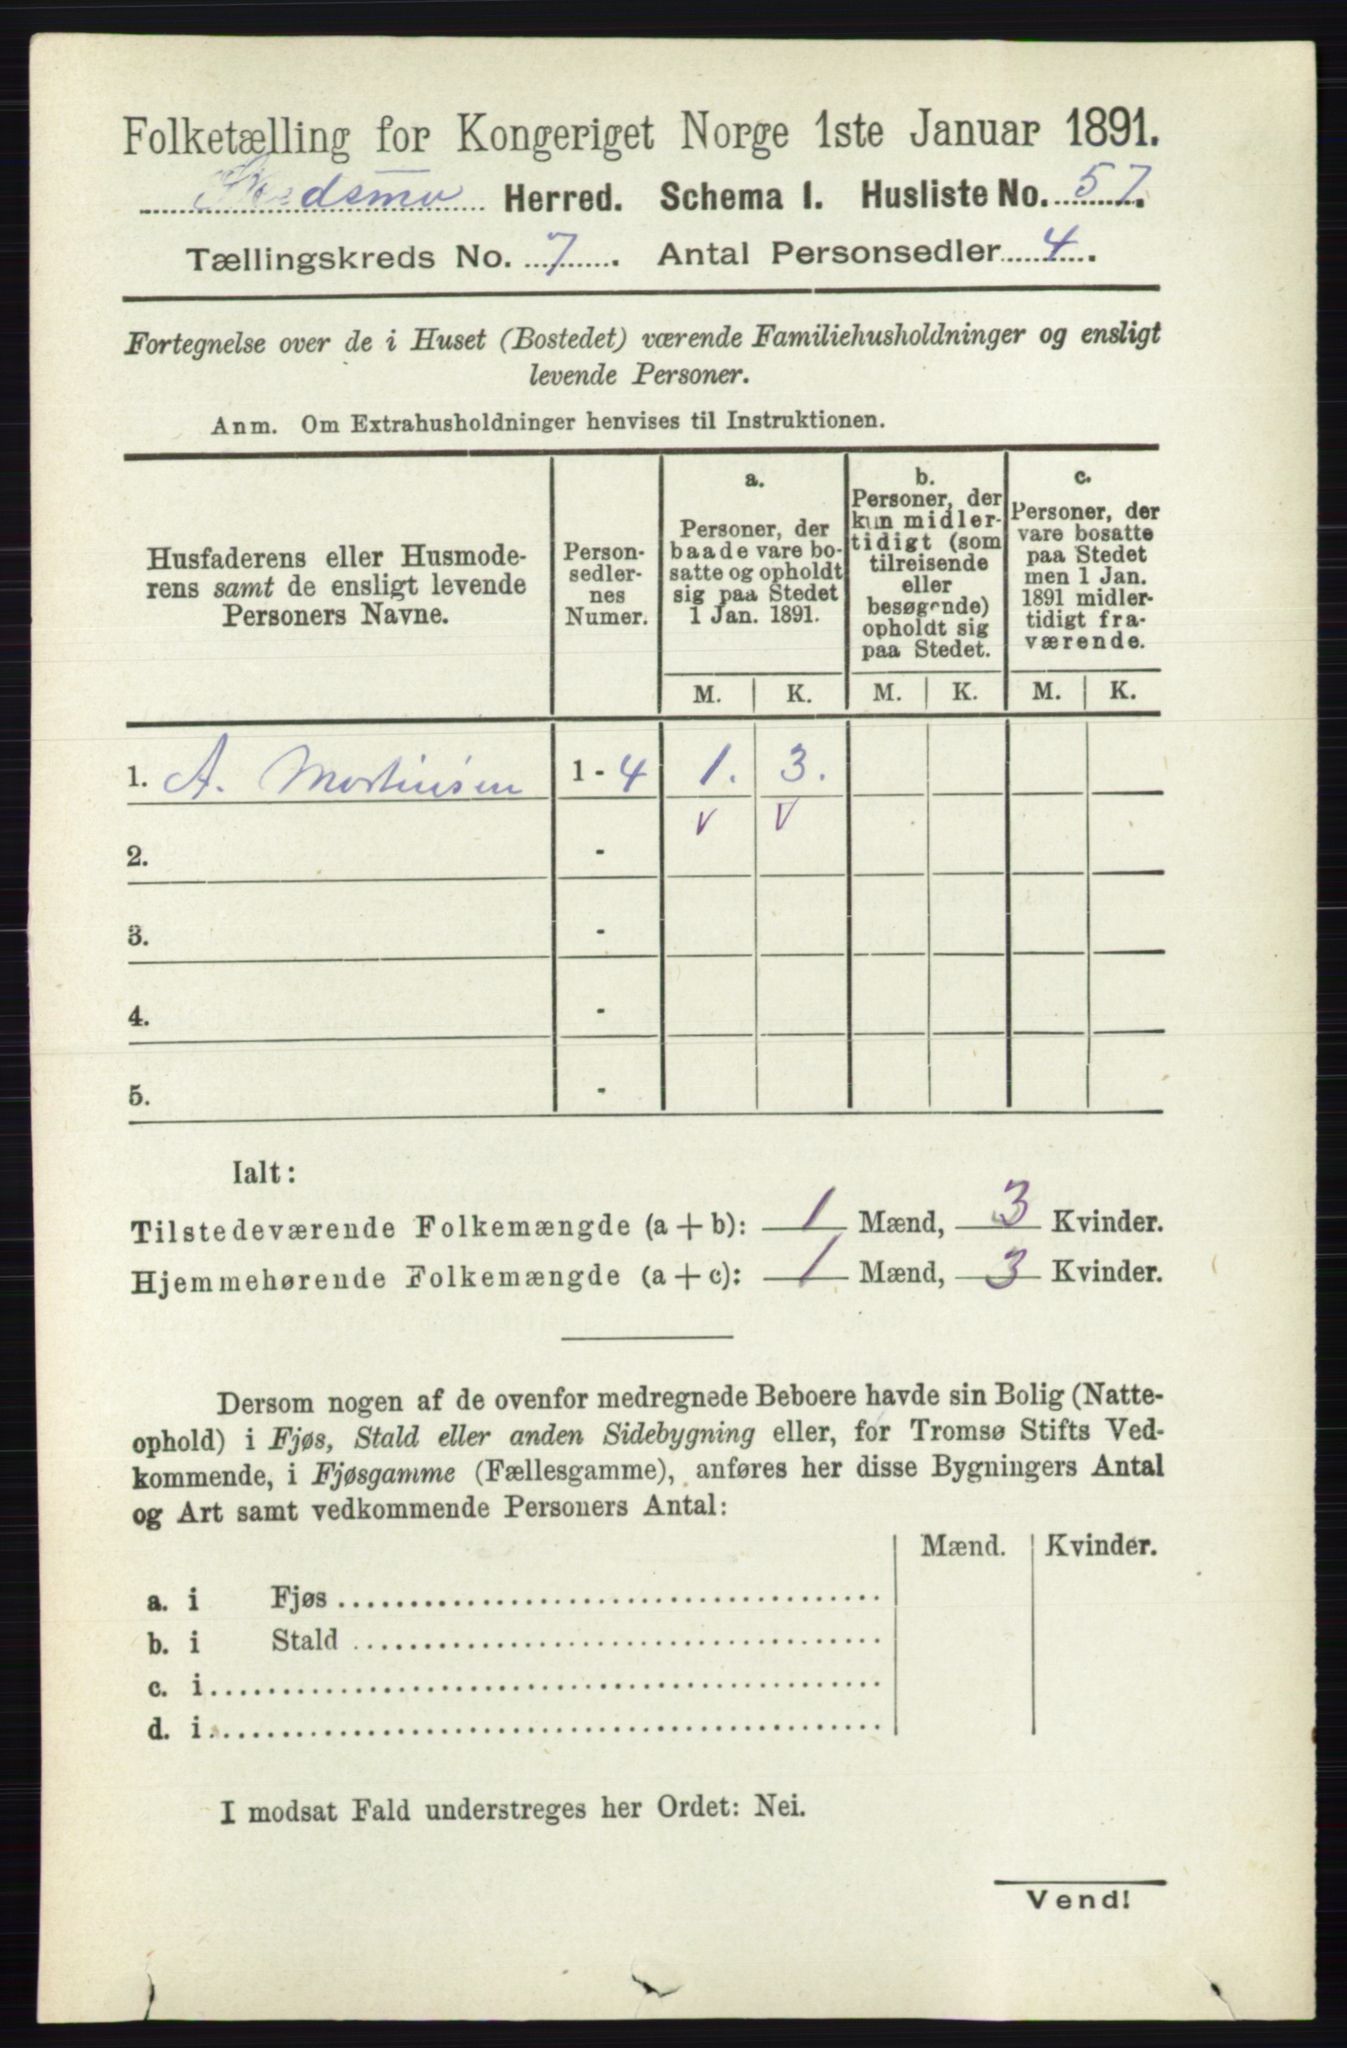 Folketælling for Kongeriget Norge 1ste Januar 1891.
Skedsmo Herred. Schema I. Husliste No. 57.
Tællingskreds No. 7. Antal Personsedler 4.
Fortegnelse over de i Huset (Bostedet) værende Familiehusholdninger og ensligt
levende Personer.
Anm. Om Extrahusholdninger henvises til Instruktionen.
Husfaderens eller Husmode-
rens samt de ensligt levende
Personers Navne.
Person-
sedler-
nes
Numer.
a.
Personer, der
baade vare bo-
satte og opholdt
sig paa Stedet
1 Jan. 1891.
b.
Personer, der
kun midler-
tidigt (som
tilreisende
eller
besøgende)
opholdt sig
paa Stedet.
c.
Personer, der
vare bosatte
paa Stedet
men 1 Jan.
1891 midler-
tidigt fra-
værende.
M. K. M. K. M. K.
1. A. Martinsen 1 - 4 1. 3.
v v
2. -
3. -
4. -
5. -
Ialt:
Tilstedeværende Folkemængde (a + b): 1 Mænd, 3 Kvinder.
Hjemmehørende Folkemængde (a + c): 1 Mænd, 3 Kvinder.
Dersom nogen af de ovenfor medregnede Beboere havde sin Bolig (Natte-
ophold) i Fjøs, Stald eller anden Sidebygning eller, for Tromsø Stifts Ved-
kommende, i Fjøsgamme (Fællesgamme), anføres her disse Bygningers Antal
og Art samt vedkommende Personers Antal:
Mænd. Kvinder.
a. i Fjøs
b. i Stald
c. i
d. i
I modsat Fald understreges her Ordet: Nei.
Vend!